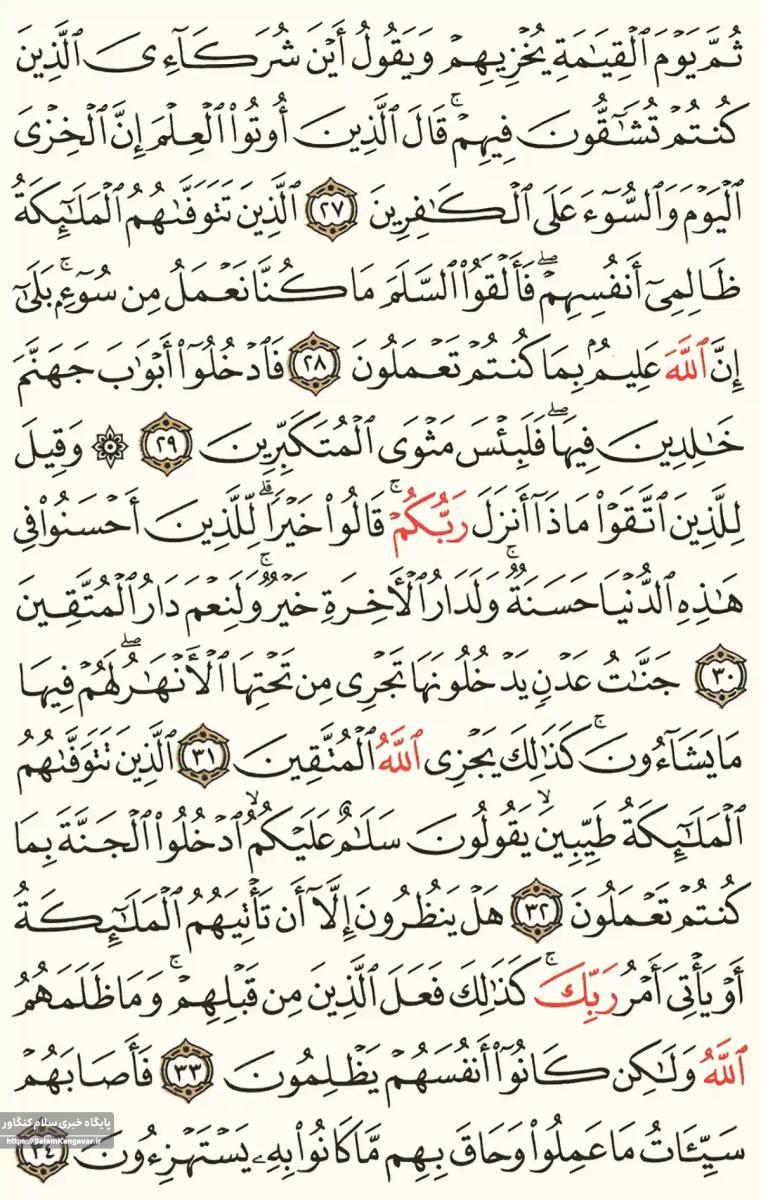 ثُمَّ يَوْمَ ٱلْقِيَٰمَةِ يُخْزِيهِمْ وَيَقُولُ أَيْنَ شُرَكَآءِىَ ٱلَّذِينَ
كُنتُمْ تُشَٰٓقُّونَ فِيهِمْ ۚ قَالَ ٱلَّذِينَ أُوتُوا۟ ٱلْعِلْمَ إِنَّ ٱلْخِزْىَ
ٱلْيَوْمَ وَٱلسُّوٓءَ عَلَى ٱلْكَٰفِرِينَ ٢٧ ٱلَّذِينَ تَتَوَفَّىٰهُمُ ٱلْمَلَٰٓئِكَةُ
ظَالِمِىٓ أَنفُسِهِمْ ۖ فَأَلْقَوُا۟ ٱلسَّلَمَ مَا كُنَّا نَعْمَلُ مِن سُوٓءٍۭ ۚ بَلَىٰٓ
إِنَّ ٱللَّهَ عَلِيمٌۢ بِمَا كُنتُمْ تَعْمَلُونَ ٢٨ فَٱدْخُلُوٓا۟ أَبْوَٰبَ جَهَنَّمَ
خَٰلِدِينَ فِيهَا ۖ فَلَبِئْسَ مَثْوَى ٱلْمُتَكَبِّرِينَ ٢٩ ۞ وَقِيلَ
لِلَّذِينَ ٱتَّقَوْا۟ مَاذَآ أَنزَلَ رَبُّكُمْ ۚ قَالُوا۟ خَيْرًا ۗ لِّلَّذِينَ أَحْسَنُوا۟ فِى
هَٰذِهِ ٱلدُّنْيَا حَسَنَةٌ ۚ وَلَدَارُ ٱلْأَخِرَةِ خَيْرٌ ۚ وَلَنِعْمَ دَارُ ٱلْمُتَّقِينَ
٣٠ جَنَّٰتُ عَدْنٍ يَدْخُلُونَهَا تَجْرِى مِن تَحْتِهَا ٱلْأَنْهَٰرُ ۖ لَهُمْ فِيهَا
مَا يَشَآءُونَ ۚ كَذَٰلِكَ يَجْزِى ٱللَّهُ ٱلْمُتَّقِينَ ٣١ ٱلَّذِينَ تَتَوَفَّىٰهُمُ
ٱلْمَلَٰٓئِكَةُ طَيِّبِينَ ۙ يَقُولُونَ سَلَٰمٌ عَلَيْكُمُ ۙ ٱدْخُلُوا۟ ٱلْجَنَّةَ بِمَا
كُنتُمْ تَعْمَلُونَ ٣٢ هَلْ يَنظُرُونَ إِلَّآ أَن تَأْتِيَهُمُ ٱلْمَلَٰٓئِكَةُ
أَوْ يَأْتِىَ أَمْرُ رَبِّكَ ۚ كَذَٰلِكَ فَعَلَ ٱلَّذِينَ مِن قَبْلِهِمْ ۚ وَمَا ظَلَمَهُمُ
ٱللَّهُ وَلَٰكِن كَانُوٓا۟ أَنفُسَهُمْ يَظْلِمُونَ ٣٣ فَأَصَابَهُمْ
سَيِّـَٔاتُ مَا عَمِلُوا۟ وَحَاقَ بِهِم مَّا كَانُوا۟ بِهِۦ يَسْتَهْزِءُونَ ٣٤
پایگاه خبری سلام کنگاور
https://SalamKangavar.ir